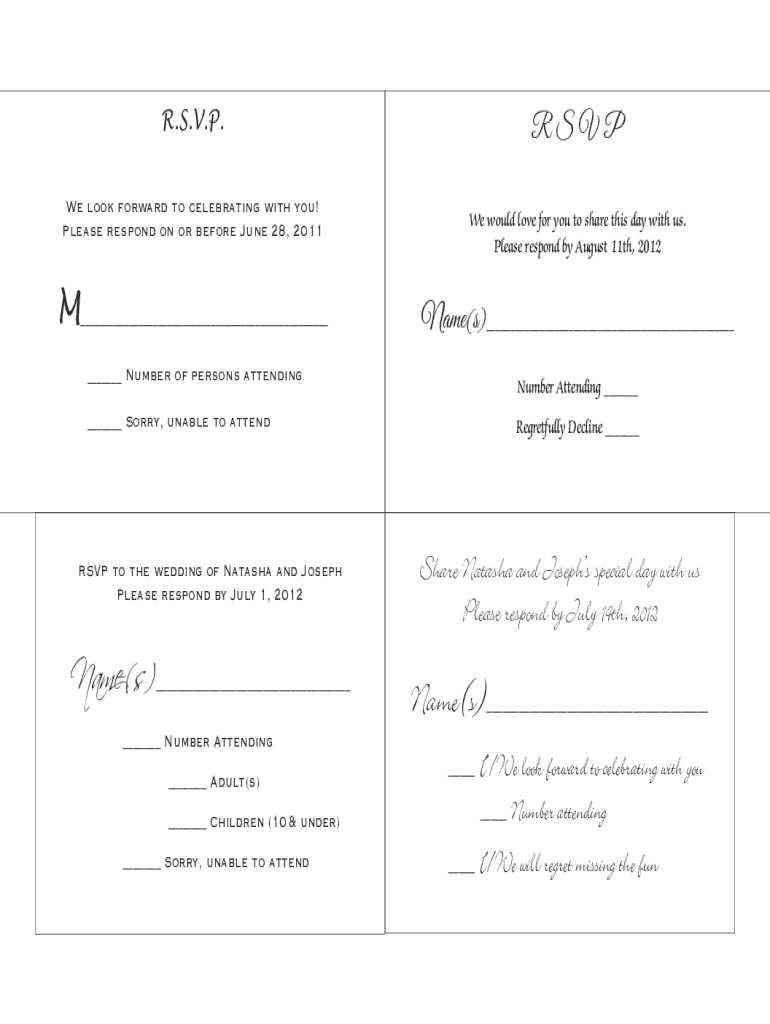 R.S.V.P.
We look forward to celebrating with you!
Please respond on or before June 28, 2011
M______________________________
______ Number of persons attending
______ Sorry, unable to attend
RSVP
We would love for you to share this day with us.
Please respond by August 11th, 2012
Name(s)______________________________
Number Attending ______
Regretfully Decline ______
RSVP to the wedding of Natasha and Joseph
Please respond by July 1, 2012
Name(s)______________________
______ Number Attending
______ Adult(s)
______ Children (10 & under)
______ Sorry, unable to attend
Share Natasha and Joseph's special day with us
Please respond by July 19th, 2012
Name(s)______________________
___ I/We look forward to celebrating with you
___ Number attending
___ I/We will regret missing the fun